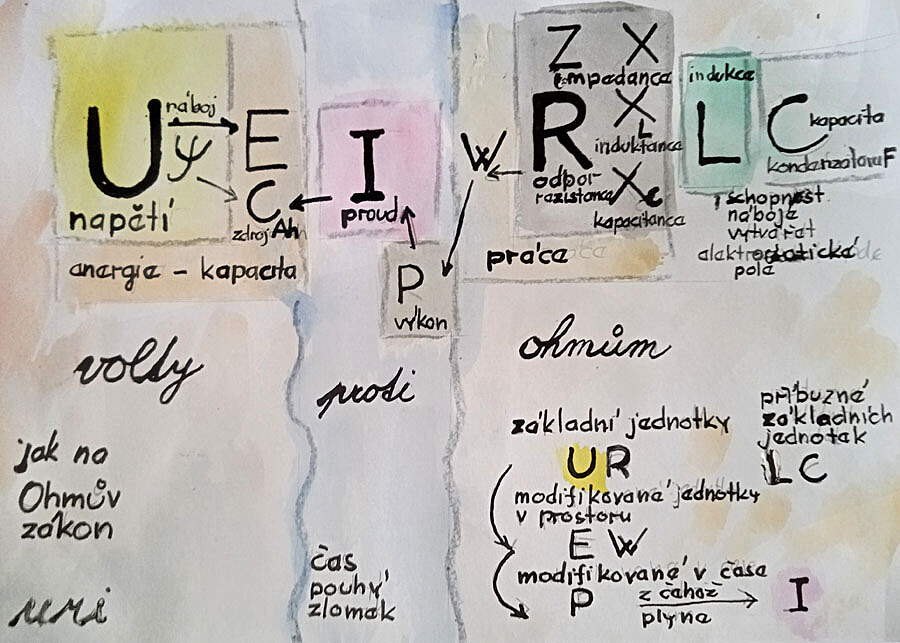 U
náboj
ψ
napětí
E
C
zdroj Ah
energie - kapacita
I
proud
P
výkon
W
práce
Z X
impedance
R
odpor
razistance
X
L
induktance
X c
kapacitance
indukce
L
C kapacita
kondenzátoru F
schopnost
náboje
vytvářet
pole
volty
proti
ohmům
jak na
Ohmův
zákon
čas
pouhý
zlomek
základní jednotky
U R
modifikované jednotky
v prostoru
E W
modifikované v čase
P
z čehož
plyne
I
příbuzné
základních
jednotek
L C